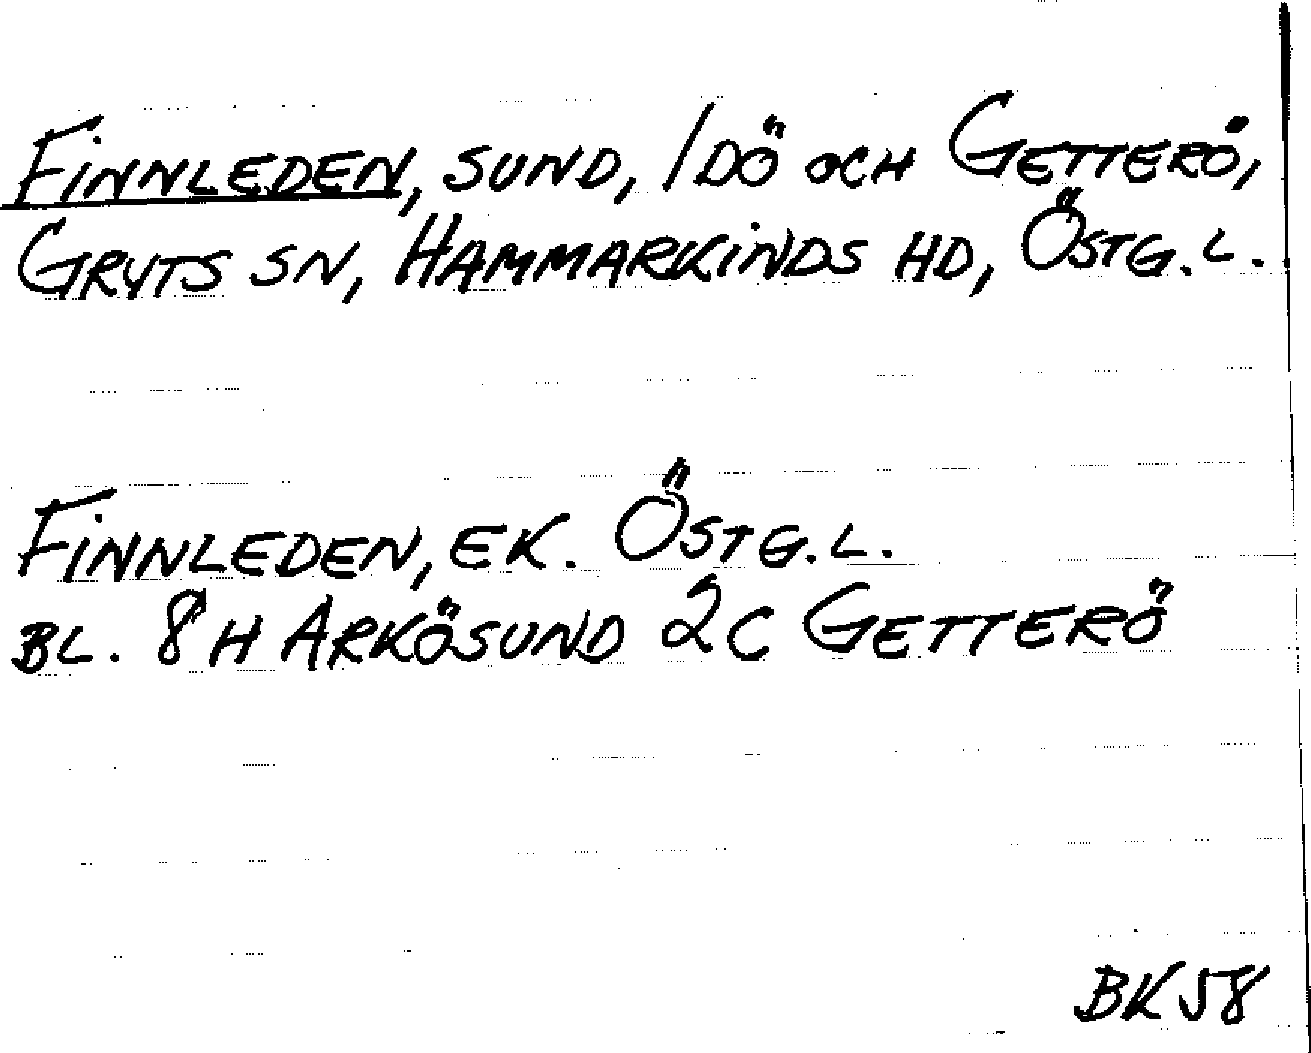 FINNLEDEN, SUND, IDÖ OCH GETTERÖ,
GRYTS SN, HAMMARKINDS HD, ÖSTG. L.
FINNLEDEN, EK. ÖSTG. L.
BL. 8H ARKÖSUND 2C GETTERÖ
BK58